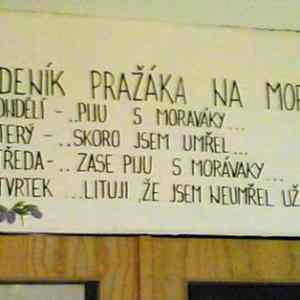 DENÍK PRAŽÁKA NA MOR
ONDĚLÍ - ..PIJU S MORAVÁKY...
TERÝ - ..SKORO JSEM UMŘEL...
TŘEDA- .. ZASE PIJU S MORÁVAKY...
TVRTEK ...LITUJI ,ŽE JSEM NEUMŘEL UŽ